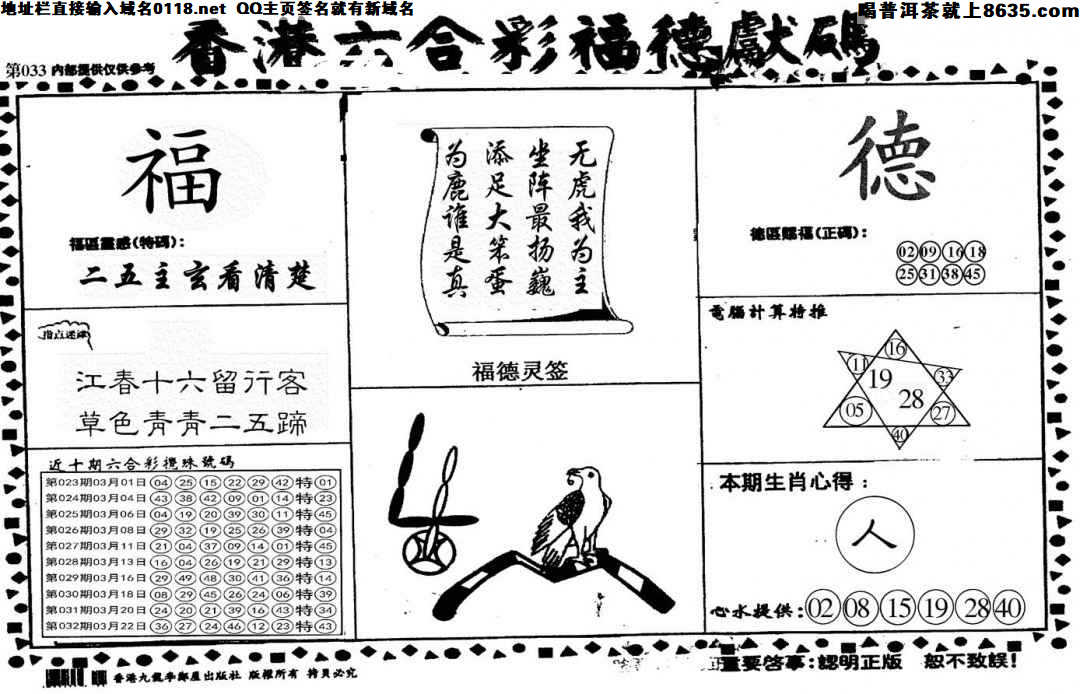 地址栏直接输入域名0118.net QQ主页签名就有新域名
喝普洱茶就上8635.com
香港六合彩福德獻碼
第033 内部提供仅供参考
福
福區靈感(特碼):
二五主玄看清楚
指点迷津
江春十六留行客
草色青青二五蹄
近十期六合彩攪珠號碼
第023期03月01日 04 25 15 22 29 42 特 01
第024期03月04日 43 38 42 09 01 14 特 23
第025期03月06日 04 19 20 39 30 11 特 45
第026期03月08日 29 32 19 25 26 39 特 04
第027期03月11日 21 04 37 09 14 01 特 45
第028期03月13日 16 04 26 19 21 29 特 13
第029期03月16日 29 49 48 30 41 36 特 14
第030期03月18日 08 29 45 26 24 06 特 39
第031期03月20日 24 20 21 39 16 43 特 34
第032期03月22日 36 27 24 46 12 23 特 43
无虎我为主
坐阵最扬巍
添足大笨蛋
为鹿谁是真
福德灵签
德
德區賜福(正碼):
02 09 16 18
25 31 38 45
電腦計算特推
16
11
33
19
28
05
27
40
本期生肖心得:
人
心水提供: 02 08 15 19 28 40
香港九龍李鄭屋出版社 版權所有 拷貝必究
重要啓事:認明正版 恕不致誤!